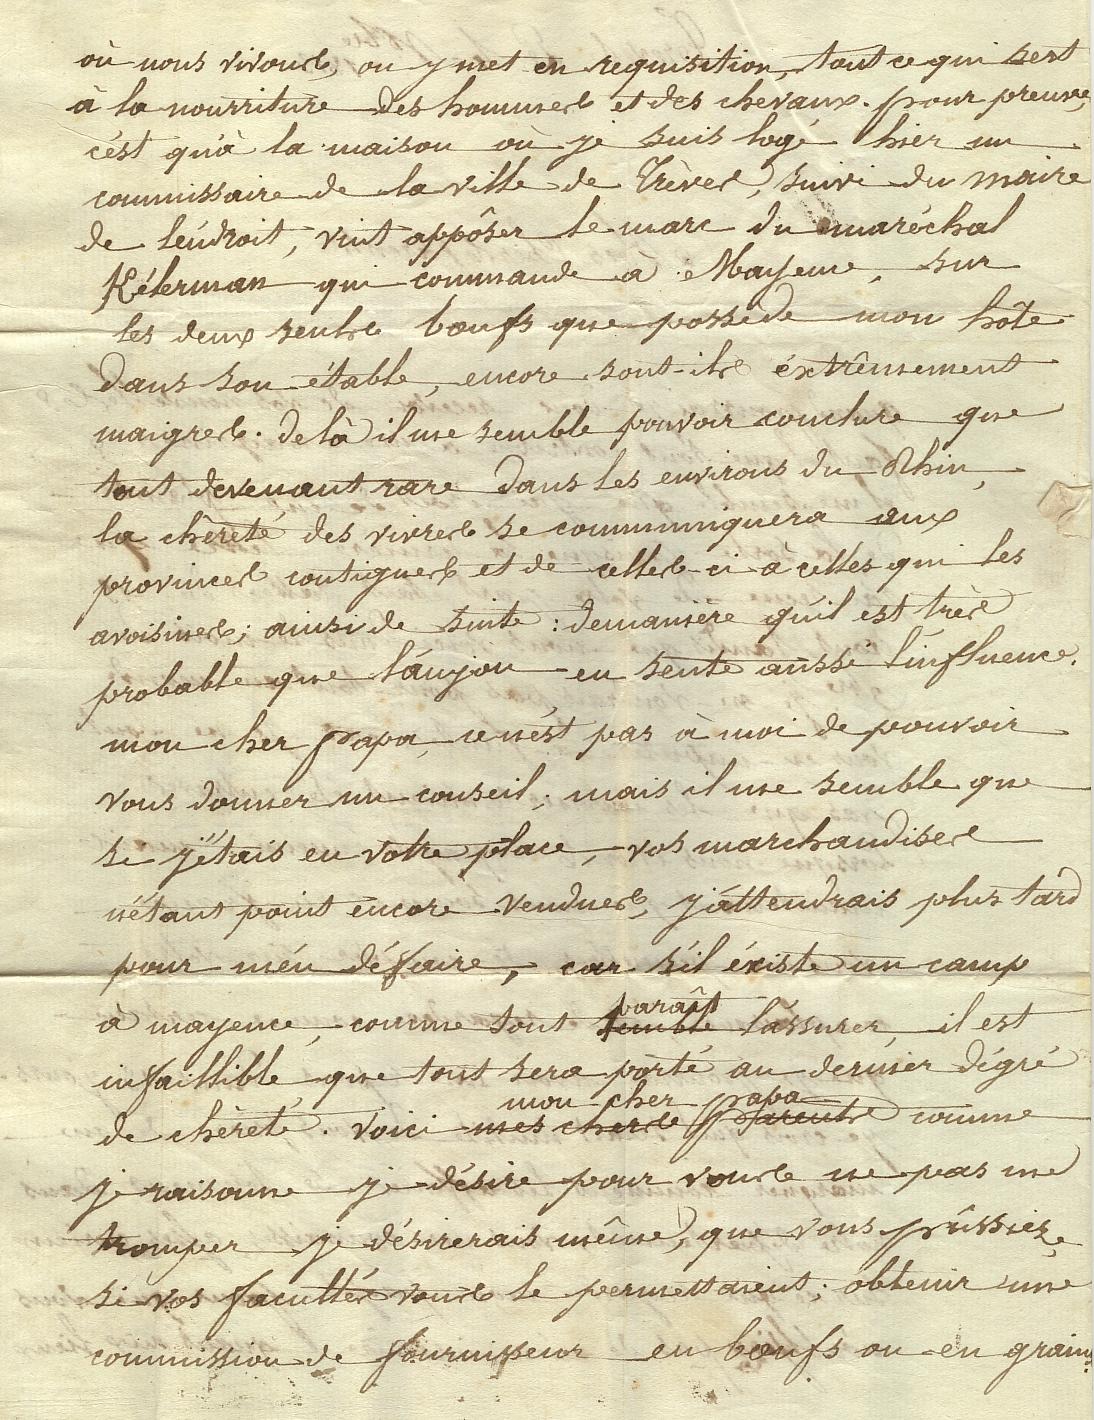 où nous vivons, on y met en requisition, tout ce qui sert
à la nourriture des hommes et des chevaux. pour preuve,
c'est qu'à la maison où je suis logé hier un
commissaire de la ville de Trèves, suivi du maire
de l'éndroit, vint appôser le marc du maréchal
Kélerman qui commande à Mayence, sur
les deux seuls bœufs que possède mon hôte
dans son étable, encore sont-ils éxtrêmement
maigres. delà il me semble pouvoir conclure que
tout devenant rare dans les environs du Rhin,
la chèreté des vivres se communiquera aux
provinces contigues et de celles-ci à celles qui les
avoisines; ainsi de suite: demanière qu'il est très
probable que l'anjou en sente aussi l'influence.
mon cher papa, ce n'ést pas à moi de pouvoir
vous donner un conseil; mais il me semble que
si j'étais en votre place, vos marchandises
n'étant point encore vendues, j'attendrais plus tard
pour m'én défaire, car s'il éxiste un camp
à mayence, comme tout ~~semble~~ paraît l'assurer, il est
infaillible que tout sera porté au dernier dégré
de chèreté. voici ~~mes chers parents~~ mon cher papa comme
je raisonne je désire pour vous ne pas me
tromper je désirerais même, que vous pûssiez,
si vos facultés vous le permettaient; obtenir une
commission de fournisseur en bœufs ou en grains.